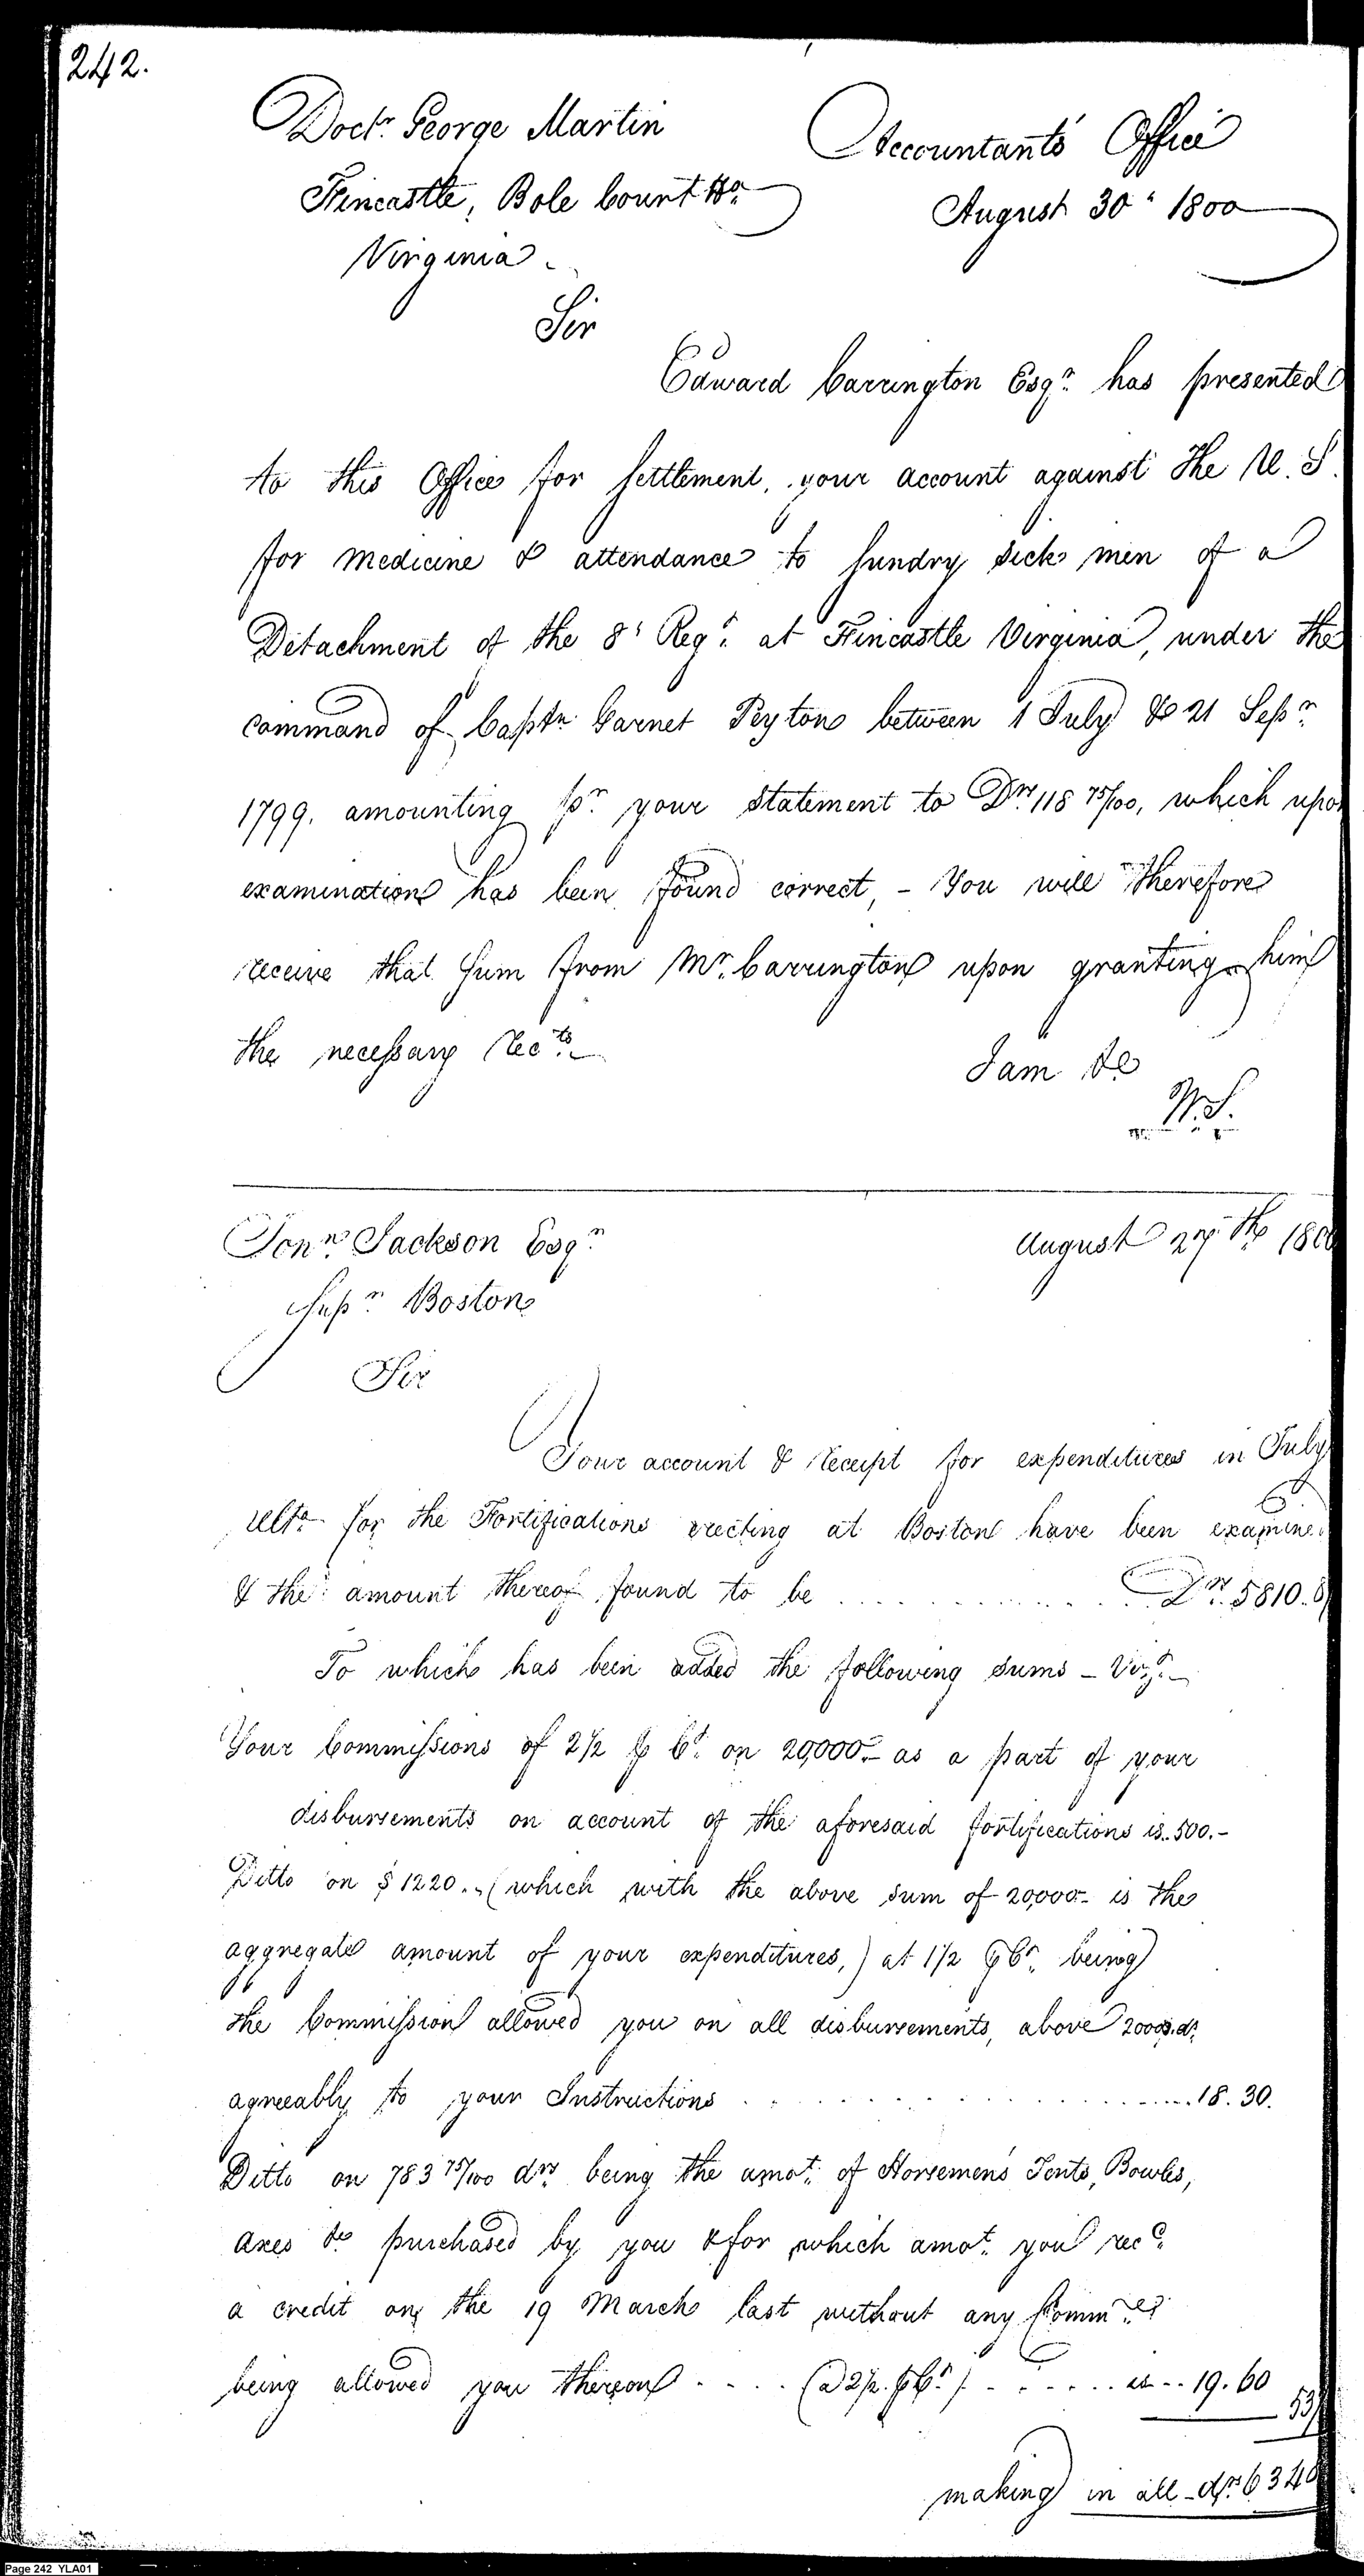 242.
Doctr. George Martin
Fincastle, Bote Count Ho.
Virginia.
Accountants Office
August 30th 1800
Sir
Edward Carrington Esqr. has presented
to this Office for settlement, your account against the U. S.
for medicine & attendance to sundry sick men of a
Detachment of the 8t Regt. at Fincastle Virginia, under the
command of Captn. Garnet Peyton between 1 July & 21 Sepr.
1799. amounting pr. your statement to Drs 118 75/100, which upon
examination has been found correct, - You will therefore
receive that sum from Mr. Carrington upon granting him
the necessary Rects.
I am &c
W. S.
Jonn. Jackson Esqr.
Supr. Boston
August 27th 1800
Sir
Your account & receipt for expenditures in July
ulto. for the Fortifications erecting at Boston have been examined
& the amount thereof found to be Drs. 5810.
To which has been added the following sums - Vizt.
Your Commissions of 2 1/2 p Ct. on 20,000 - as a part of your
disbursements on account of the aforesaid fortifications is.. 500.-
Ditto on $ 1220.. (which with the above sum of 20,000 - is the
aggregate amount of your expenditures,) at 1 1/2 p Ct. being
the Commission allowed you on all disbursements, above 20000. ds.
agreeably to your Instructions 18. 30.
Ditto on 783 75/100 drs. being the amot. of Horsemens Tents, Bowls,
axes &c purchased by you & for which amot. you recd.
a credit on the 19 March last without any Commns.
being allowed you thereon .... (a 2 1/2. p Ct.) is .. 19. 60
53
making in all - drs. 6340